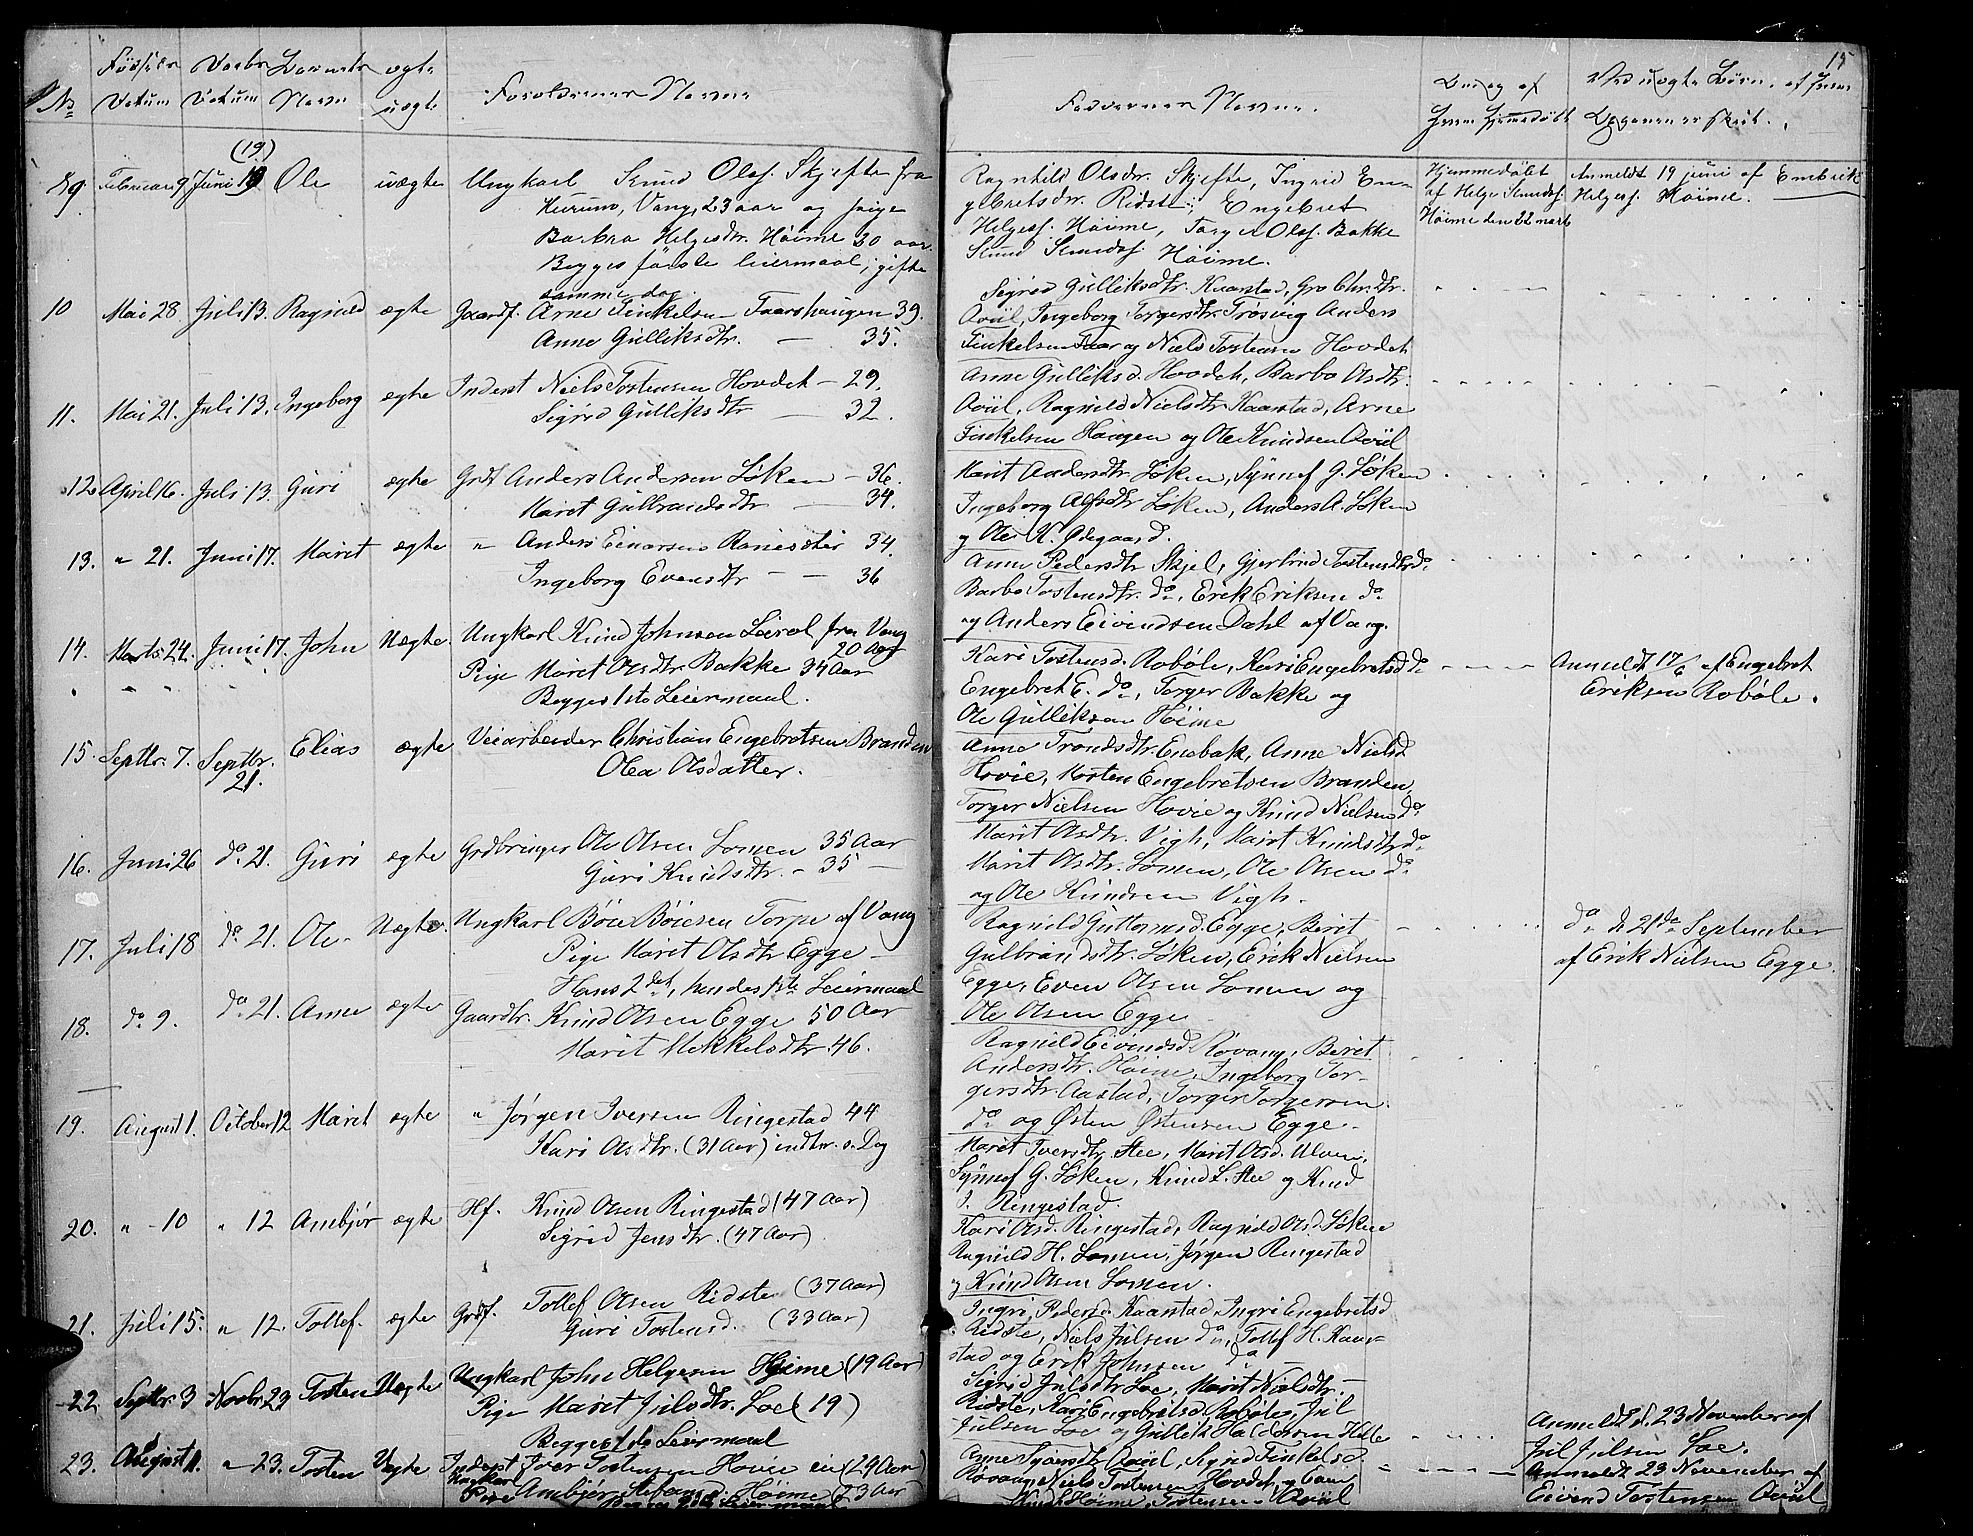 15
No Fødsels Datum Daabs Datum Barnets Navn ægte uægte Forældrenes Navne
Faddernes Navne. Daab af Hjemmedøbt Ved uægte Børn, af hvem Opgaven er skeet.
(19)
9. Februar 9 Juni 19 Ole uægte Ungkarl Knud Olsf. Skjefte fra
Hurum, Vang, 23 aar og pige
Barbra Helgesdtr. Høime 30 aar
Begges første leiermaal; gifte
samme dag.
Ragnhild Olsdtr. Skjefte, Ingrid En-
gebretsdtr. Ridste; Engebret
Helgesf. Høime, Torger Olsf. Bakke
Knud Knudsf. Høime.
Hjemmedøbt
af Helge Knudsf.
Høime den 22 marts
Anmeldt 19 juni af Embrik
Helgesf. Høime.
10 Mai 28 Juli 13. Ragnild ægte Gaardf. Arne Finkelsen Faarshaugen 39.
Anne Gulliksdtr. — 35.
Sigrid Gulliksdtr. Kaarstad, Gro Chr.dtr.
Qvül, Ingeborg Torgersdtr. Trøsvig Anders
Finkelsen Faar og Niels Tostensen Hovdet
11. Mai 21. Juli 13. Ingeborg ægte Inderst Niels Tostensen Hovdet — 29.
Sigrid Gulliksdtr — 32.
Anne Gulliksd. Hovdet, Barbo Olsdtr.
Qvül, Ragnild Nielsdtr. Kaarstad, Arne
Finkelsen Haugen og Ole Knudsen Qvül
12. April 16. Juli 13. Guri ægte Grdf Anders Andersen Løken — 36.
Marit Gulbrandsdtr — 34.
Marit Andersdtr Løken, Synnøf G. Løken
Ingeborg Alfsdtr Løken, Anders A. Løken
og Ole K. Ødegaard.
13. " 21. Juni 17. Marit ægte " Anders Einarsen 34.
Ingeborg Evensdtr — — 36
Anne Pedersdtr Skjel, Gjertrud Tostensdtr do.
Barbo Tostensdtr. do, Erik Eriksen do
og Anders Eivindsen Dahl af Vang.
14. Marts 24. Juni 17. John Uægte Ungkarl Knud Johnsen Leirol fra Vang
20 Aar
Pige Marit Olsdtr Bakke 34 Aar
Begges 1ste Leiermaal.
Kari Tostensd. Robøle, Kari Engebretsd do
Engebret E. do, Torger Bakke og
Ole Gulliksen Høime
Anmeldt 17/6 af Engebret
Eriksen Robøle.
15. Septbr. 7. Septbr. 21. Elias ægte Veiarbeider Christian Engebretsen Branden
Olea Olsdatter.
Anne Trondsdtr. Enebak, Anne Nielsd.
Hovie, Morten Engebretsen Branden,
Torger Nielsen Hovie og Knud Nielsen do
16. Juni 26 do 21. Guri ægte Grdbruger Ole Olsen Lomen 35 Aar
Guri Knudsdtr. — 35 —
Marit Olsdtr. Vigh, Marit Knudsdtr do
Marit Olsdtr. Lomen, Ole Olsen do
og Ole Knudsen Vigh.
17. Juli 18 do 21. Ole Uægte Ungkarl Bøie Bøiesen Torpe af Vang
Pige Marit Olsdtr Egge —
Hans 2det, hendes 1ste Leiermaal
Ragnild Guttormsd. Egge, Berit
Gulbrandsdtr. Løken, Erik Nielsen
Egge, Even Olsen Lomen og
Ole Olsen Egge
do d. 21de September
af Erik Nielsen Egge.
18. do 9. do 21. Anne ægte Gaardbr. Knud Olsen Egge 50 Aar
Marit Mekkelsdtr. 46.
Ragnild Eivindsd. Rovang, Berit
Andersdtr. Høime, Ingeborg Tor-
gersdtr. Aastad, Torger Torgersen
do og Østen Østensen Egge.
19. August 1. October 12 Marit ægte " Jørgen Iversen Ringestad 44
Kari Olsdtr. (31 Aar) indtr. s. Dag
Marit Iversdtr. Hee, Marit Olsd. Ulven,
Synnøf G. Løken, Knud L. Hee og Knud
J. Ringestad.
20. " 10 " 12 Ambjør ægte Hf. Knud Olsen Ringestad (47 Aar)
Sigrid Jensdtr. (47 Aar)
Kari Olsd. Ringestad, Ragnild Olsd. Løken
Ragnild H. Lomen, Jørgen Ringestad
og Knud Olsen Lomen.
21. Juli 15. " 12. Tollef. ægte Grdf. Tollef Olsen Ridste (37 Aar)
Guri Tostensd. (33 Aar)
Ingri Pedersd. Kaarstad, Ingri Engebretsd.
Ridste, Niels Julsen do, Tollef H. Kaar-
stad og Erik Johnsen do
22 Septbr. 3 Novbr 23 Tosten Uægte Ungkarl John Helgesen Høime (19 Aar)
Pige Marit Julsdtr. Loe (19)
Begges 1ste Leiermaal
Sigrid Julsdtr Loe, Marit Nielsdtr.
Ridste, Kari Engebretsd. Robøle, Jul
Julsen Loe og Gullik Haldorsen Hølle
Anmeldt d. 23 November af
Jul Julsen Loe.
23. August 1. " 23. Tosten Uægte Inderst Ungkarl Iver Tostensen Hovie (29 Aar)
Pige Ambjør Stefansd. Høime (23 Aar)
Qvül, Sigrid Finkelsd.
Rovang, Niels Tostensen Hovdet, og
Høime, Tostensen Qvül
Anmeldt 23 November af
Eivind Tostensen Qvül